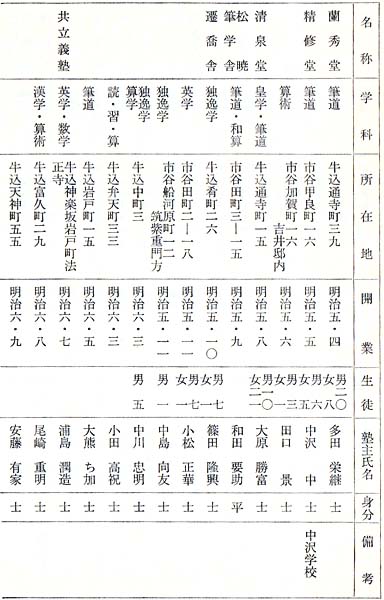 名称 学科 所在地 開業 生徒 塾主氏名 身分 備考
蘭秀堂 筆道 牛込通寺町三九 明治五・四 男二〇 女八 多田栄継 士
精修堂 筆道 市谷甲良町一六 明治五・五 男六 女五 中沢中 士 中沢学校
算術 市谷加賀町一六 吉井邸内 明治五・六 男三 女一 田口景 士
清泉堂 皇学・筆道 牛込通寺町一五 明治五・八 男 女 大原勝富 士
松暁筆学舎 筆道・和算 市谷田町三―一五 明治五・九 和田要助 平
遷喬舎 独逸学 牛込肴町二六 明治五・一〇 男七 女一 篠田隆興 士
英学 市谷田町二―一八 明治五・一一 男七 女一 小松正華 士
独逸学 市谷船河原町一二 筑紫重門方 明治五・一一 男一 中島向友 士
独逸学 算学 牛込中町三 明治六・三 男五 中川忠明 士
読・習・算 牛込弁天町三三 明治六・三 小田高祝 士
筆道 牛込岩戸町一五 明治六・五 大熊ち加 士
共立義塾 英学・数学 牛込神楽坂岩戸町法正寺 明治六・七 浦島潤造 士
漢学・算術 牛込富久町二九 明治六・八 尾崎重明 士
牛込天神町五五 明治六・九 安藤有家 士